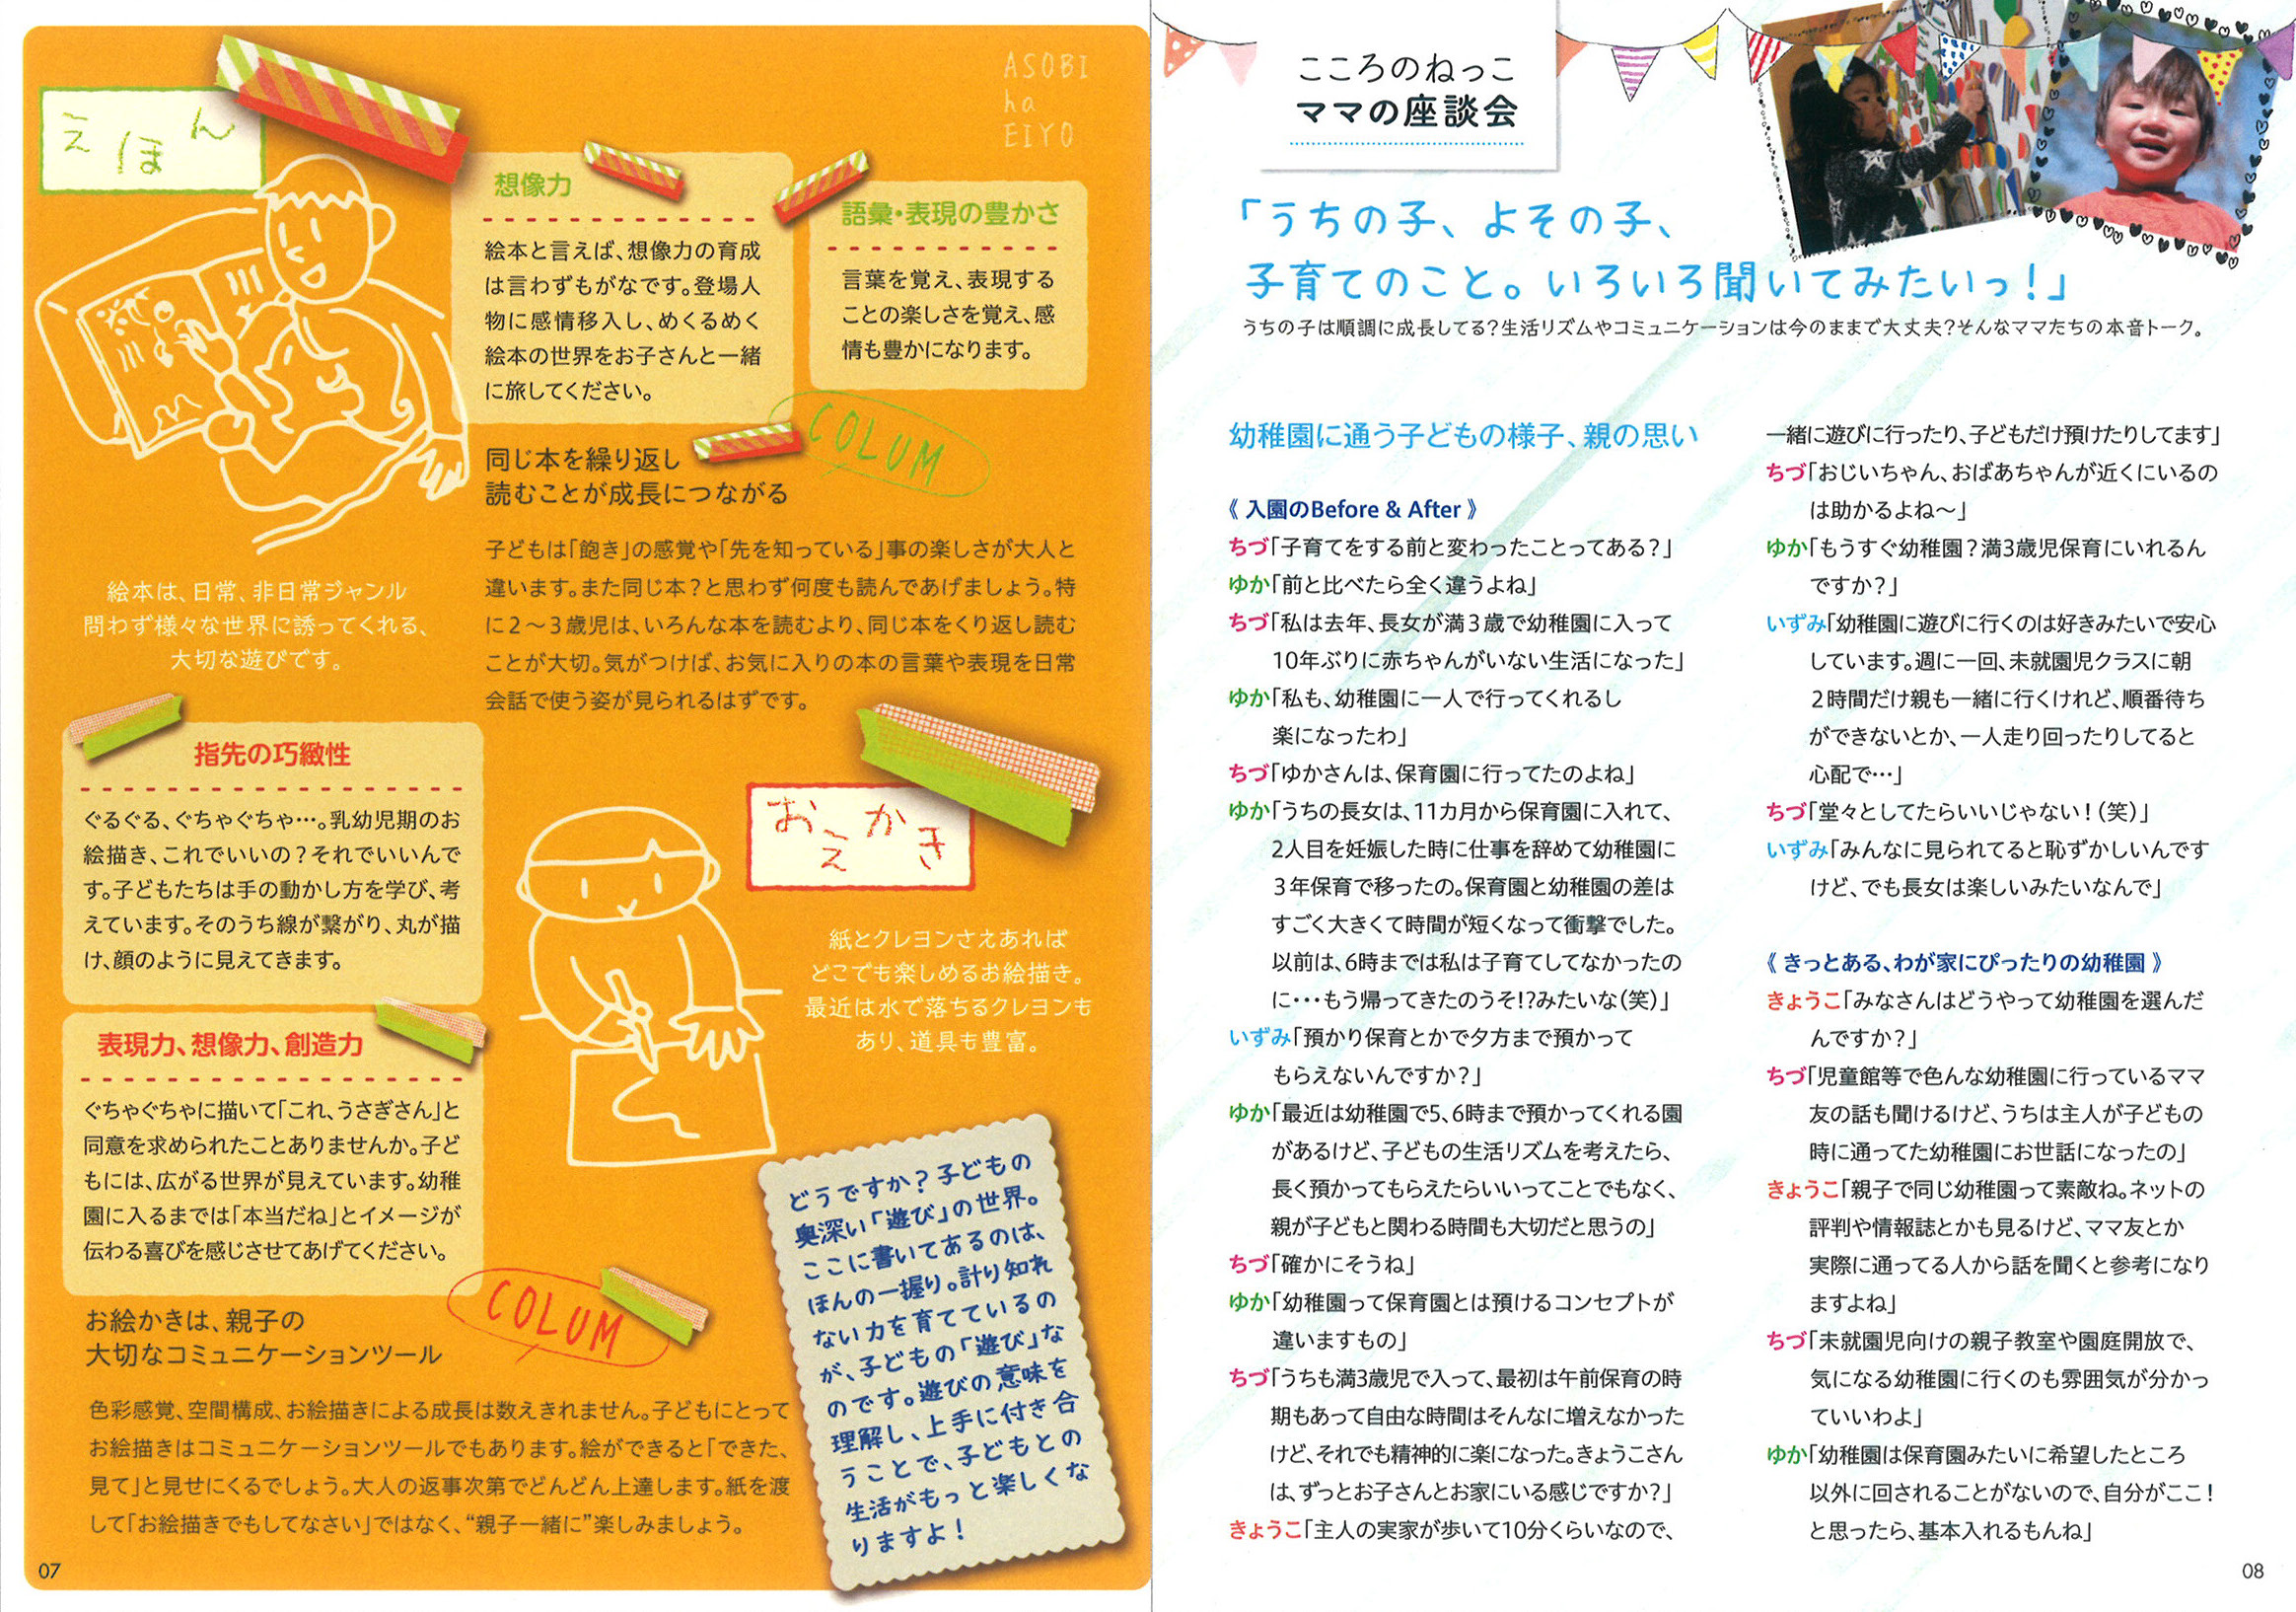 ASOBI
ha
EIYO
えほん
想像力
絵本と言えば、想像力の育成
は言わずもがなです。登場人
物に感情移入し、めくるめく
絵本の世界をお子さんと一緒
に旅してください。
語彙・表現の豊かさ
言葉を覚え、表現する
ことの楽しさを覚え、感
情も豊かになります。
絵本は、日常、非日常ジャンル
問わず様々な世界に誘ってくれる、
大切な遊びです。
COLUM
同じ本を繰り返し
読むことが成長につながる
子どもは「飽き」の感覚や「先を知っている」事の楽しさが大人と
違います。また同じ本？と思わず何度も読んであげましょう。特
に２～３歳児は、いろんな本を読むより、同じ本をくり返し読む
ことが大切。気がつけば、お気に入りの本の言葉や表現を日常
会話で使う姿が見られるはずです。
おえかき
指先の巧緻性
ぐるぐる、ぐちゃぐちゃ…。乳幼児期のお
絵描き、これでいいの？それでいいんで
す。子どもたちは手の動かし方を学び、考
えています。そのうち線が繋がり、丸が描
け、顔のように見えてきます。
表現力、想像力、創造力
ぐちゃぐちゃに描いて「これ、うさぎさん」と
同意を求められたことありませんか。子ど
もには、広がる世界が見えています。幼稚
園に入るまでは「本当だね」とイメージが
伝わる喜びを感じさせてあげてください。
紙とクレヨンさえあれば
どこでも楽しめるお絵描き。
最近は水で落ちるクレヨンも
あり、道具も豊富。
COLUM
お絵かきは、親子の
大切なコミュニケーションツール
色彩感覚、空間構成、お絵描きによる成長は数えきれません。子どもにとって
お絵描きはコミュニケーションツールでもあります。絵ができると「できた、
見て」と見せにくるでしょう。大人の返事次第でどんどん上達します。紙を渡
して「お絵描きでもしてなさい」ではなく、“親子一緒に”楽しみましょう。
どうですか？子どもの
奥深い「遊び」の世界。
ここに書いてあるのは、
ほんの一握り。計り知れ
ない力を育てているの
が、子どもの「遊び」な
のです。遊びの意味を
理解し、上手に付き合
うことで、子どもとの
生活がもっと楽しくな
りますよ！
07
こころのねっこ
ママの座談会
「うちの子、よその子、
子育てのこと。いろいろ聞いてみたいっ！」
うちの子は順調に成長してる？生活リズムやコミュニケーションは今のままで大丈夫？そんなママたちの本音トーク。
幼稚園に通う子どもの様子、親の思い
《 入園のBefore & After 》
ちづ「子育てをする前と変わったことってある？」
ゆか「前と比べたら全く違うよね」
ちづ「私は去年、長女が満３歳で幼稚園に入って
10年ぶりに赤ちゃんがいない生活になった」
ゆか「私も、幼稚園に一人で行ってくれるし
楽になったわ」
ちづ「ゆかさんは、保育園に行ってたのよね」
ゆか「うちの長女は、11カ月から保育園に入れて、
2人目を妊娠した時に仕事を辞めて幼稚園に
３年保育で移ったの。保育園と幼稚園の差は
すごく大きくて時間が短くなって衝撃でした。
以前は、6時までは私は子育てしてなかったの
に・・・もう帰ってきたのうそ！？みたいな（笑）」
いずみ「預かり保育とかで夕方まで預かって
もらえないんですか？」
ゆか「最近は幼稚園で5、6時まで預かってくれる園
があるけど、子どもの生活リズムを考えたら、
長く預かってもらえたらいいってことでもなく、
親が子どもと関わる時間も大切だと思うの」
ちづ「確かにそうね」
ゆか「幼稚園って保育園とは預けるコンセプトが
違いますもの」
ちづ「うちも満3歳児で入って、最初は午前保育の時
期もあって自由な時間はそんなに増えなかった
けど、それでも精神的に楽になった。きょうこさん
は、ずっとお子さんとお家にいる感じですか？」
きょうこ「主人の実家が歩いて10分くらいなので、
一緒に遊びに行ったり、子どもだけ預けたりしてます」
ちづ「おじいちゃん、おばあちゃんが近くにいるの
は助かるよね～」
ゆか「もうすぐ幼稚園？満3歳児保育にいれるん
ですか？」
いずみ「幼稚園に遊びに行くのは好きみたいで安心
しています。週に一回、未就園児クラスに朝
２時間だけ親も一緒に行くけれど、順番待ち
ができないとか、一人走り回ったりしてると
心配で…」
ちづ「堂々としてたらいいじゃない！（笑）」
いずみ「みんなに見られてると恥ずかしいんです
けど、でも長女は楽しいみたいなんで」
《 きっとある、わが家にぴったりの幼稚園 》
きょうこ「みなさんはどうやって幼稚園を選んだ
んですか？」
ちづ「児童館等で色んな幼稚園に行っているママ
友の話も聞けるけど、うちは主人が子どもの
時に通ってた幼稚園にお世話になったの」
きょうこ「親子で同じ幼稚園って素敵ね。ネットの
評判や情報誌とかも見るけど、ママ友とか
実際に通ってる人から話を聞くと参考になり
ますよね」
ちづ「未就園児向けの親子教室や園庭開放で、
気になる幼稚園に行くのも雰囲気が分かっ
ていいわよ」
ゆか「幼稚園は保育園みたいに希望したところ
以外に回されることがないので、自分がここ！
と思ったら、基本入れるもんね」
08